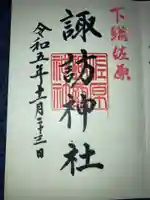 下総佐原
諏訪神社
令和五年十二月二十三日